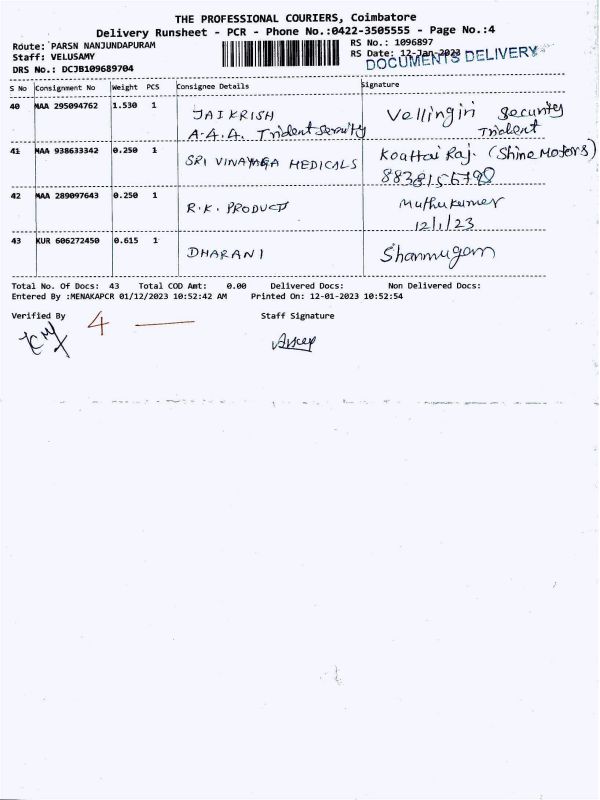 THE PROFESSIONAL COURIERS, Coimbatore
Delivery Runsheet - PCR - Phone No.:0422-3505555 - Page No.:4
Route: PARSN NANJUNDAPURAM
RS No.: 1096897
Staff: VELUSAMY
RS Date: 12-Jan-2023
DOCUMENTS DELIVERY
DRS No.: DCJB109689704
S No Consignment No Weight PCS Consignee Details Signature
40 MAA 295094762 1.530 1 JAIKRISH Vellingiri Security
A.4.4. Trident Security Trident
41 MAA 938633342 0.250 1 SRI VINAYAGA MEDICALS Koattai Raj. (Shine Motors)
42 MAA 289097643 0.250 1 R.K. PRODUCT Muthukumar
12/1/23
43 KUR 606272450 0.615 1 DHARANI Shanmugam
Total No. Of Docs: 43 Total COD Amt: 0.00 Delivered Docs: Non Delivered Docs:
Entered By :MENAKAPCR 01/12/2023 10:52:42 AM Printed On: 12-01-2023 10:52:54
Verified By 4 — Staff Signature